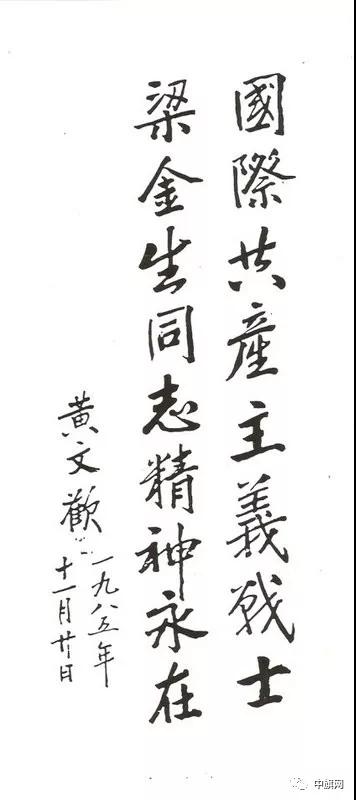 國際共產主義战士
梁金生同志精神永在
黄文歡
一九八五年
十一月廿日
中旗网